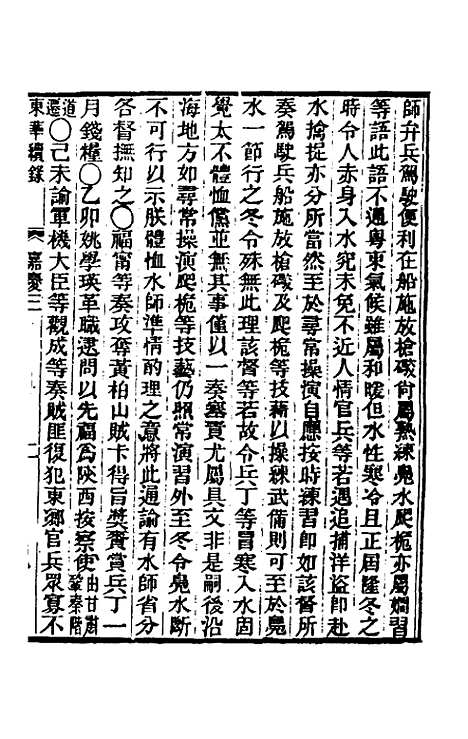 師弁兵駕駛便利在船施放槍礮尚屬熟練鳧水爬桅亦屬嫻習
等語此語不過粵東氣候雖屬和暖但水性寒冷且正屆隆冬之
時令人赤身入水究未免不近人情官兵等若遇追捕洋盜即赴
水擒捉亦分所當然至於尋常操演自應按時練習即如該督所
奏駕駛兵船施放槍礮及爬桅等技藉以操練武備則可至於鳧
水一節行之冬令殊無此理該督等若故令兵丁等冒寒入水固
覺太不體恤儻並無其事僅以一奏塞責尤屬具文非是嗣後沿
海地方如尋常操演爬桅等技藝仍照常演習外至冬令鳧水斷
不可行以示朕體恤水師準情酌理之意將此通諭有水師省分
各督撫知之〇福甯等奏攻奪黃柏山賊卡得旨獎賚賞兵丁一
月錢糧〇乙卯姚學瑛革職逮問以先福為陝西按察使由甘肅鞏秦階
道遷〇己未諭軍機大臣等觀成等奏賊匪復犯東鄉官兵眾寡不
東華續錄 嘉慶三 二